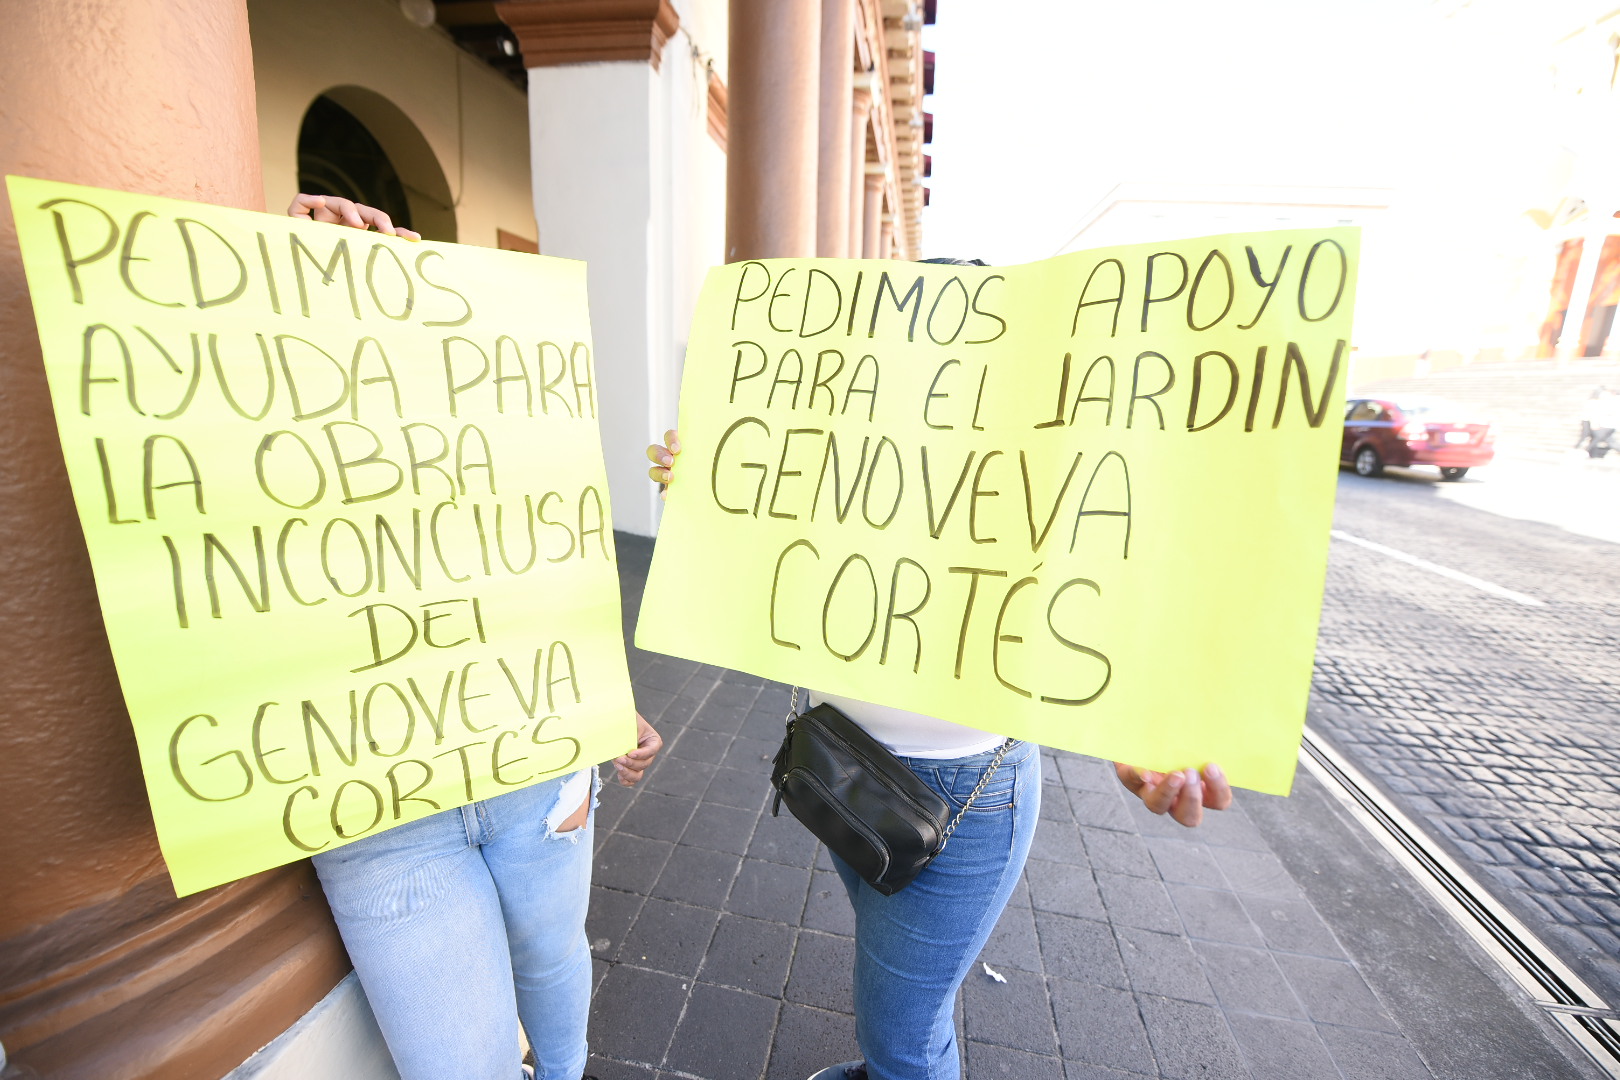 PEDIMOS
AYUDA PARA
LA OBRA
INCONCIUSA
DEI
GENOVEVA
CORTÉS
PEDIMOS APOYO
PARA EL JARDIN
GENOVEVA
CORTÉS